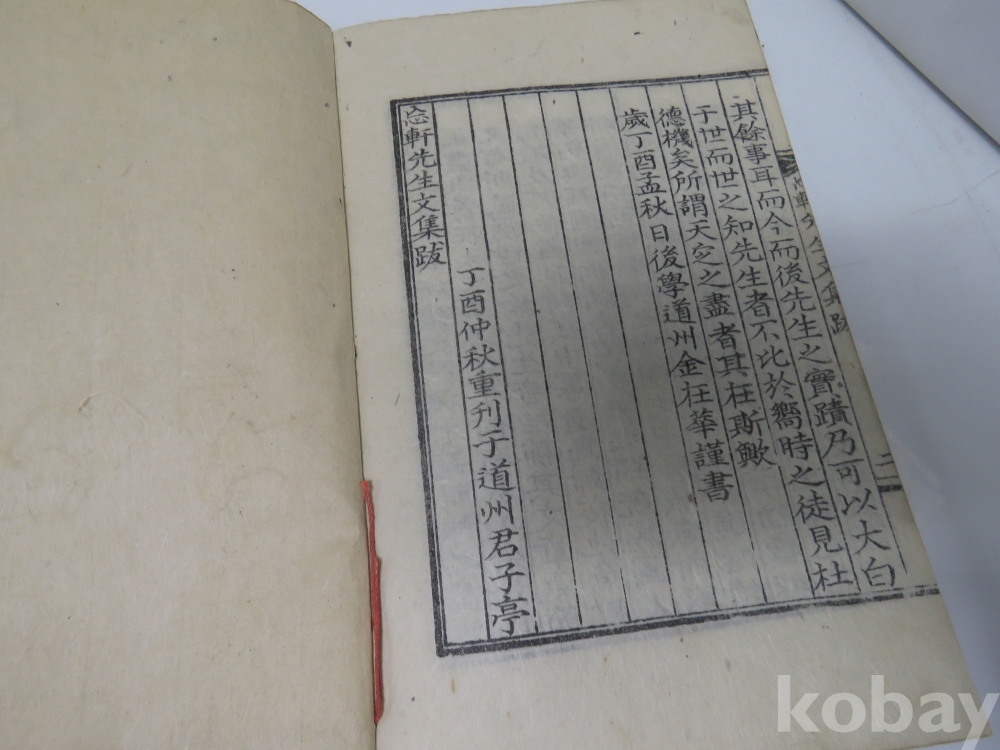 忘軒先生文集跋
二
其餘事耳而今而後先生之實蹟乃可以大白
于世而世之知先生者不比於嚮時之徒見杜
德機矣所謂天㝎之盡者其在斯歟
歲丁酉孟秋日後學道州金在華謹書
丁酉仲秋重刊于道州君子亭
忘軒先生文集跋
kobay